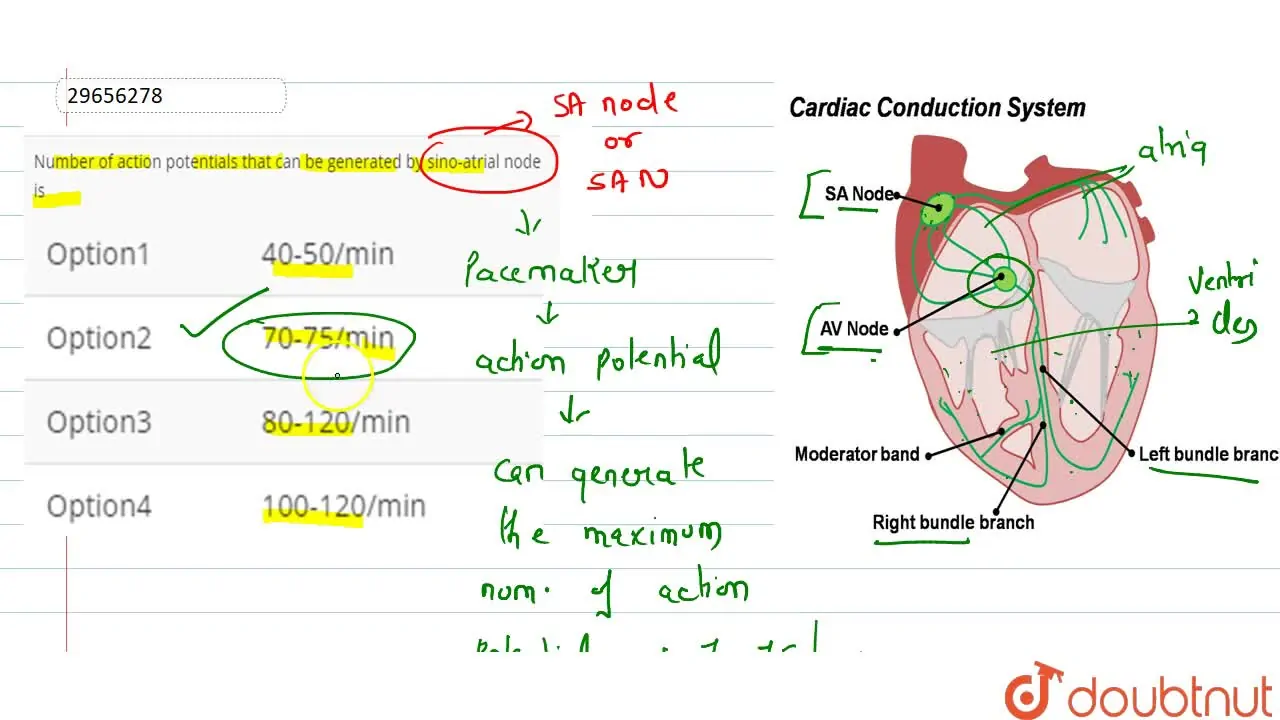 29656278
Number of action potentials that can be generated by sino-atrial node
is
Option1 40-50/min
Option2 70-75/min
Option3 80-120/min
Option4 100-120/min
SA node
or
SAN
Pacemaker
action potential
can generate
the maximum
num. of action
Cardiac Conduction System
SA Node
AV Node
Moderator band
Right bundle branch
Left bundle branc
atria
Ventri
doubtnut